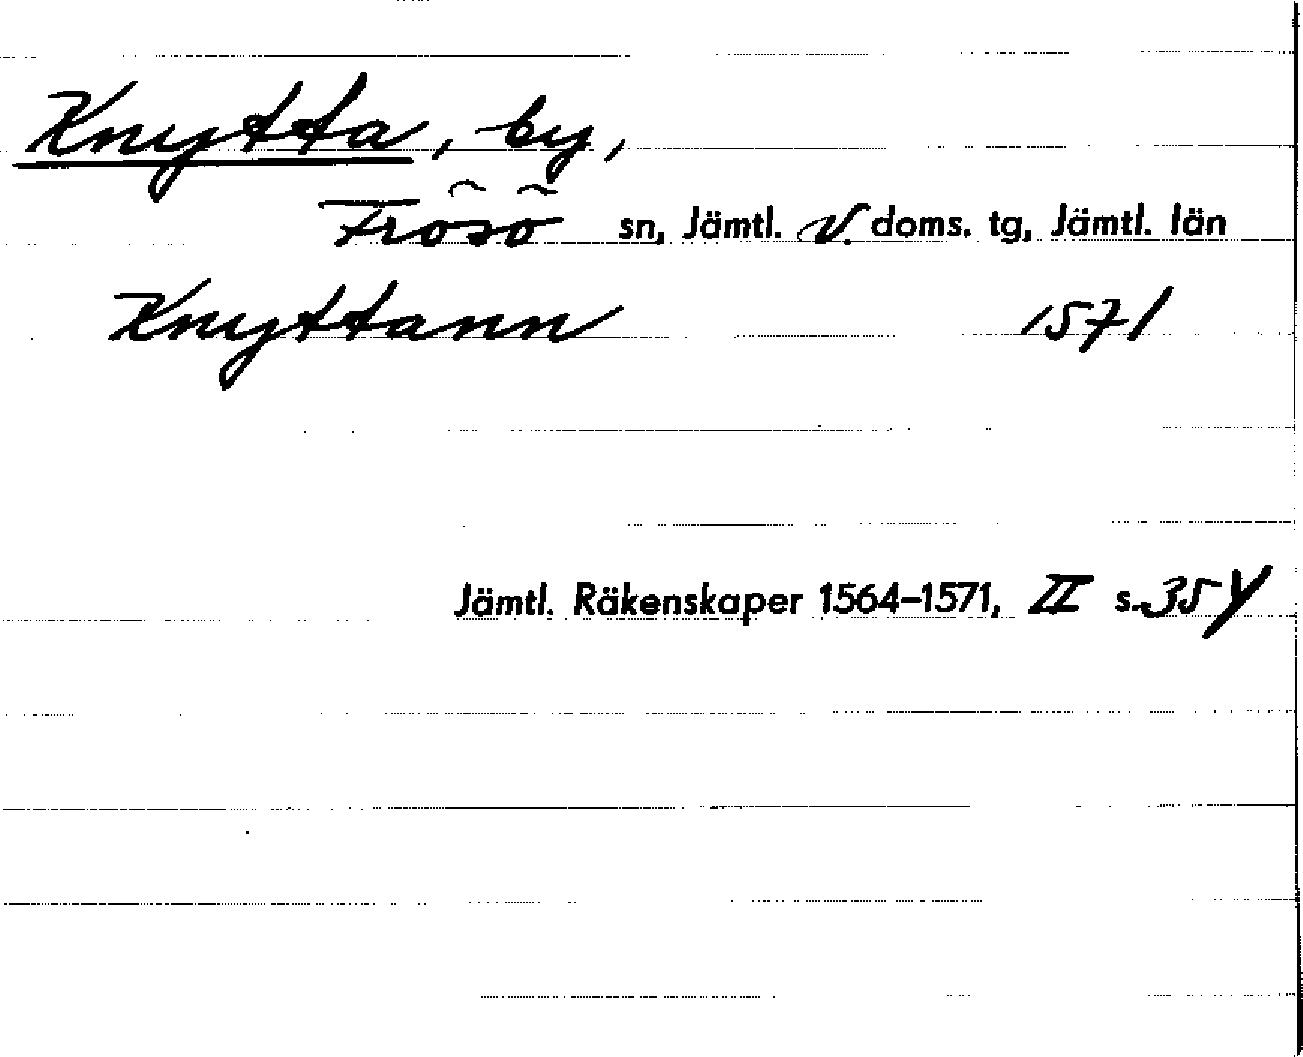 Knytta, by,
Frösö sn, Jämtl. V. doms. tg, Jämtl. län
Knyttann 1571
Jämtl. Räkenskaper 1564-1571, II s. 354